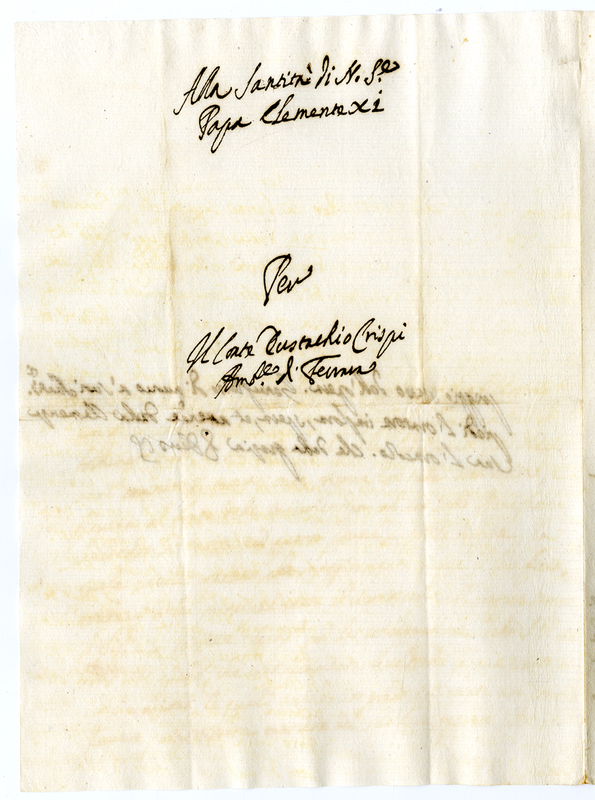 Alla Santità di N. S.re
Papa Clemente XI
Per
Il Conte Eustachio Crispi
Amb.re di Ferrara